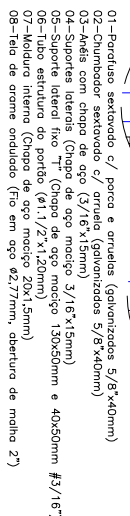 01-Parafuso sextavado c/ porca e arruelas (galvanizados 5/8"x40mm)
02-Chumbador sextavado c/ arruela (galvanizados 5/8"x40mm)
03-Anéis com chapa de aço (3/16"x15mm)
04-Suportes laterais (Chapa de aço maciço 3/16"x15mm)
05-Suporte lateral fixo "T" (Chapa de aço maciço 130x50mm e 40x50mm #3/16"
06-Tubo estrutura do portão (Ø1.1/2"x1,20mm)
07-Moldura interna (Chapa de aço maciço 20x1,5mm)
08-Tela de arame ondulado (Fio em aço Ø2,77mm, abertura de malha 2")